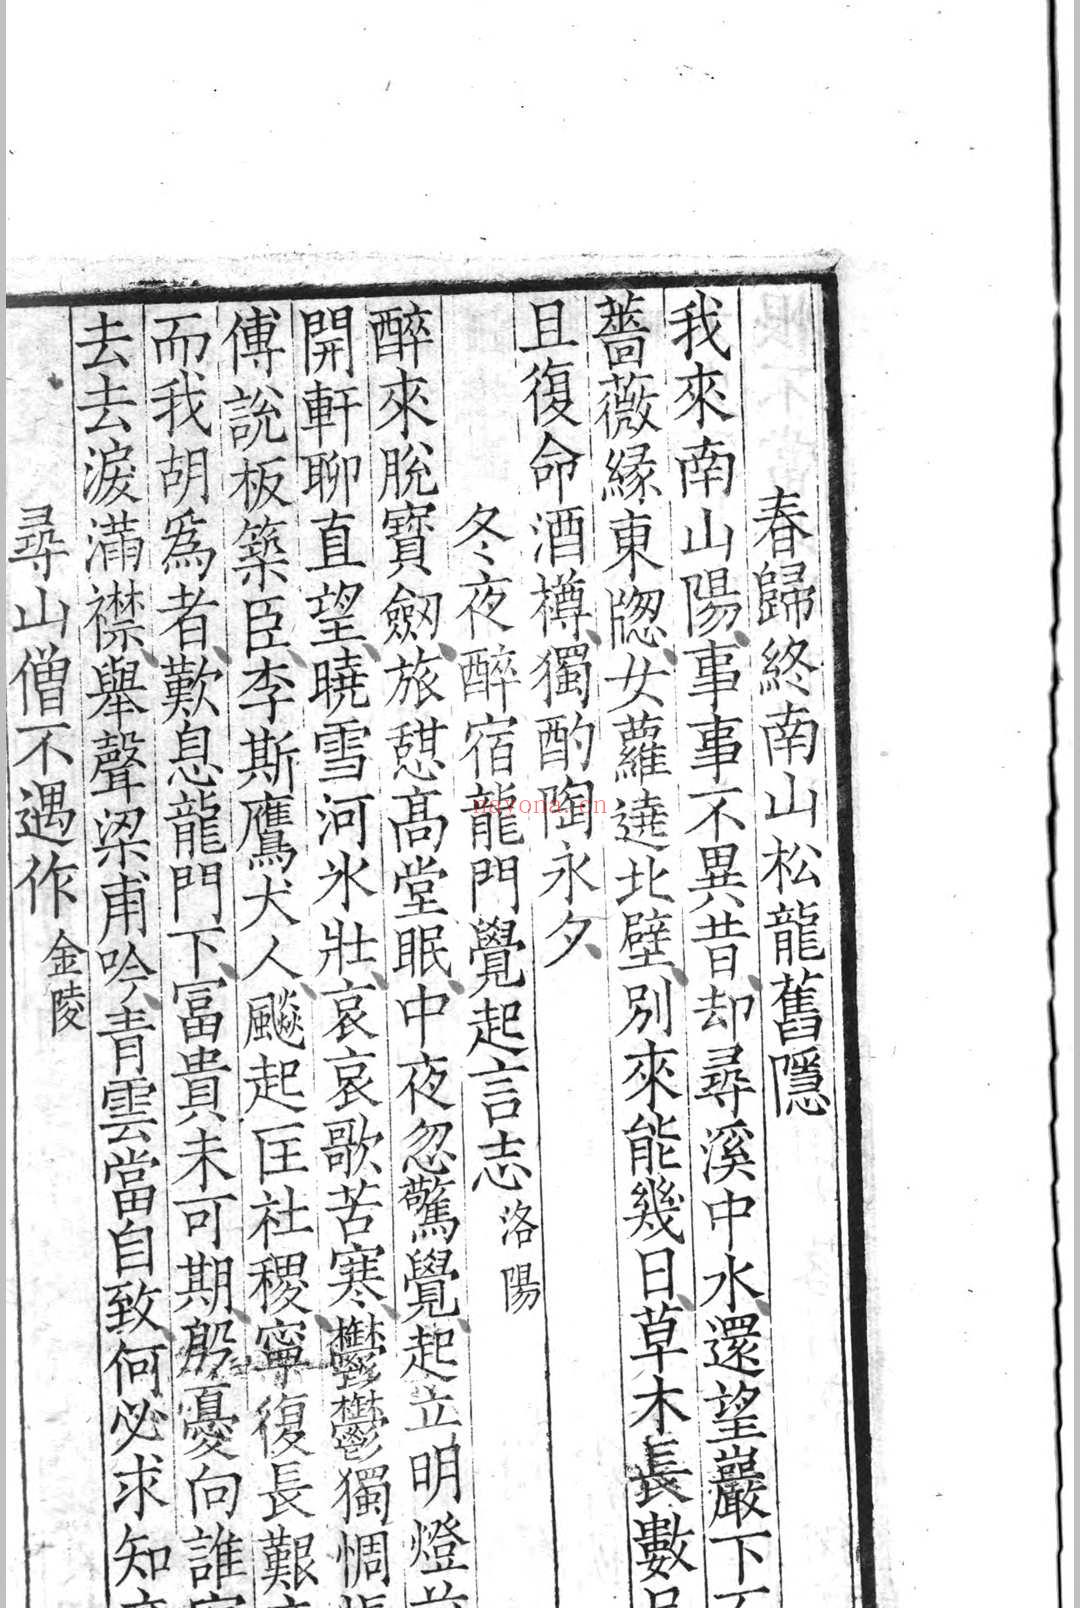 春歸終南山松龍舊隱
我來南山陽事事不異昔却尋溪中水還望巖下
薔薇緣東窓女蘿遶北壁別來能幾日草木長數
且復命酒樽獨酌陶永夕
冬夜醉宿龍門覺起言志 洛陽
醉來脫寶劔旅憇高堂眠中夜忽驚覺起立明燈
開軒聊直望曉雪河氷壯哀哀歌苦寒鬱鬱獨惆
傅說板築臣李斯鷹犬人飈起匡社稷寧復長艱
而我胡爲者歎息龍門下富貴未可期殷憂向誰
去去淚滿襟舉聲梁甫吟青雲當自致何必求知
尋山僧不遇作 金陵
nayona.cn